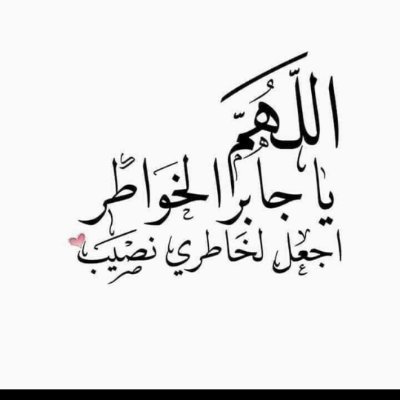 اللَّهُمَّ
يا جابرا لخَواطر
اجعل لخَاطري نصيَب